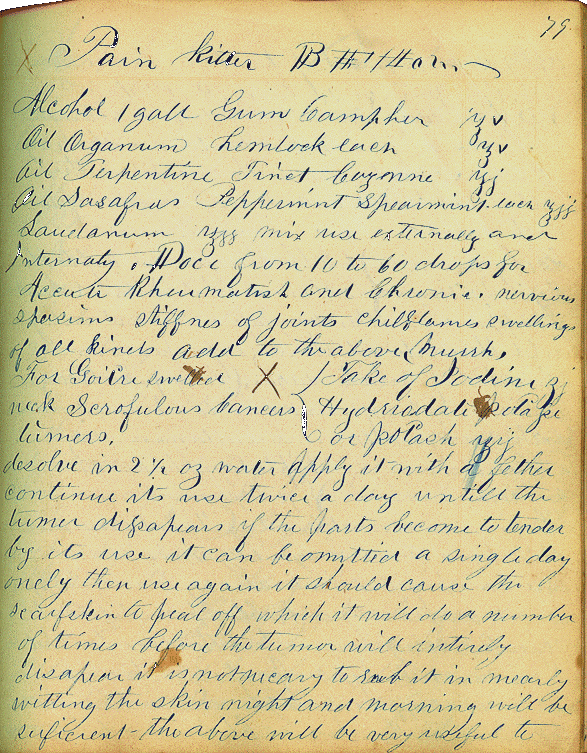 79
X Pain killer
Alcohol 1 gall Gum Campher ʒv
Oil Organum hemlock each ʒv
Oil Terpentine Tinct Cayonne ʒj
Oil Sasafras Peppermint Spearmint each ʒjj
Laudanum ʒjj mix use externally and
internaly. Doce from 10 to 60 drops for
Accute Rheumatish and Chronic. nervious
spasims stiffnes of joints chilblames swellings
of all kinds add to the above Murrh.
For Goitre swelled X Take of Iodine ʒj
neck Scrofulous Cancers Hydriodate potase
tumers. or potash ʒjj
desolve in 2 ½ oz water Apply it with a fether
continue its use twice a day untill the
tumer dissapears if the parts become to tender
by its use it can be omytted a single day
onely then use again it should cause the
scarfskin to peal off which it will do a number
of times before the tumor will entirely
disapear it is not necary to rub it in mearly
witting the skin night and morning will be
suficient - the above will be very useful to